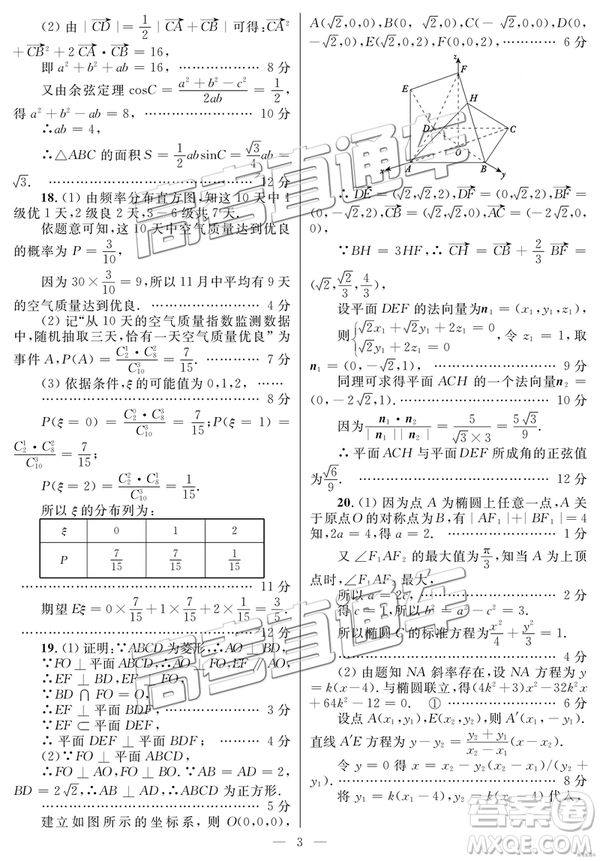 (2) 由 |CD| = 1/2 |CB + CA| 可得: CA²
+ CB² + 2 CA · CB = 16,
即 a² + b² + ab = 16, ……………… 8 分
又由余弦定理 cosC = (a² + b² − c²)/2ab = 1/2,
得 a² + b² − ab = 8, ……………… 10 分
∴ab = 4,
∴△ABC 的面积 S = 1/2 absinC = √3/4 ab =
√3. ……………… 12 分
18. (1) 由频率分布直方图, 知这 10 天中 1
级优 1 天, 2 级良 2 天, 3−6 级共 7 天.
依题意可知, 这 10 天中空气质量达到优良
的概率为 P = 3/10,
因为 30 × 3/10 = 9, 所以 11 月中平均有 9 天
的空气质量达到优良. ……………… 4 分
(2) 记“从 10 天的空气质量指数监测数据
中, 随机抽取三天, 恰有一天空气质量优良”为
事件 A, P(A) = C₂¹·C₈²/C₁₀³ = 7/15, ……… 7 分
(3) 依据条件, ξ 的可能值为 0, 1, 2, ……
……………… 8 分
P(ξ = 0) = C₂⁰·C₈³/C₁₀³ = 7/15, P(ξ = 1) =
C₂¹·C₈²/C₁₀³ = 7/15,
P(ξ = 2) = C₂²·C₈¹/C₁₀³ = 1/15,
所以 ξ 的分布列为:
ξ 0 1 2
P 7/15 7/15 1/15
……………… 11 分
期望 Eξ = 0 × 7/15 + 1 × 7/15 + 2 × 1/15 = 3/5.
……………… 12 分
19. (1) 证明: ∵ABCD 为菱形, ∴AO ⊥ BD,
∵FO ⊥ 平面 ABCD, ∴AO ⊥ FO, EF ∥ AO,
∴EF ⊥ BD, EF ⊥ FO,
∵BD ∩ FO = O,
∴EF ⊥ 平面 BDF, ……………… 3 分
∵EF ⊂ 平面 DEF,
∴ 平面 DEF ⊥ 平面 BDF, ……………… 4 分
(2) ∵FO ⊥ 平面 ABCD,
∴FO ⊥ AO, FO ⊥ BO, AB = AD = 2,
BD = 2√2, ∴ABCD 为正方形.
……………… 5 分
建立如图所示的坐标系, 则 O(0,0,0),
A(√2,0,0), B(0, √2,0), C(−√2,0,0), D(0,
−√2,0), E(√2,0,2), F(0,0,2), ……………… 6 分
z
F
E
H
D
C
O
A
B
x
y
∴ DE = (√2,√2,2), DF = (0,√2,2), BF =
(0,−√2,2), CB = (√2,√2,0), AC = (−2√2,0,
0),
∵ BH = 3HF, ∴ CH = CB + 2/3 BF =
(√2, √2/3, 4/3),
设平面 DEF 的法向量为 n₁ = (x₁, y₁, z₁),
则 {√2x₁ + √2y₁ + 2z₁ = 0 √2y₁ + 2z₁ = 0, 令 z₁ = 1, 取
n₁ = (0, −√2, 1), ……………… 9 分
同理可求得平面 ACH 的一个法向量 n₂ =
(0, −2√2, √2). ……………… 11 分
∴ 平面 ACH 与平面 DEF 所成角的正弦值
为 √6/9. ……………… 12 分
20. (1) 因为点 A 为椭圆上任意一点, A 关
于原点 O 的对称点为 B, 由 |AF₁| + |BF₁| = 4
知, 2a = 4, ∴ a = 2. ……………… 1 分
又 ∠F₁AF₂ 的最大值为 π/3, 知当 A 为上顶
点时, ∠F₁AF₂ 最大,
所以 a = 2c. ……………… 2 分
得 c = 1. ∴b² = a² − c² = 3,
所以椭圆 C 的标准方程为 x²/4 + y²/3 = 1.
……………… 4 分
(2) 由题知 NA 斜率存在, 设 NA 方程为 y
= k(x − 4), 与椭圆联立, 得 (4k² + 3)x² − 32k²x
+ 64k² − 12 = 0. ① ……………… 6 分
设点 A(x₁, y₁), E(x₂, y₂), 则 A′(x₁, −y₁).
直线 A′E 方程为 y − y₂ = (y₂ + y₁)/(x₂ − x₁) (x − x₂),
……………… 8 分
将 y₁ = k(x₁ − 4), y₂ = k(x₂ − 4) 代入,
— 3 —
高考直通车
高考直通车
答案圈